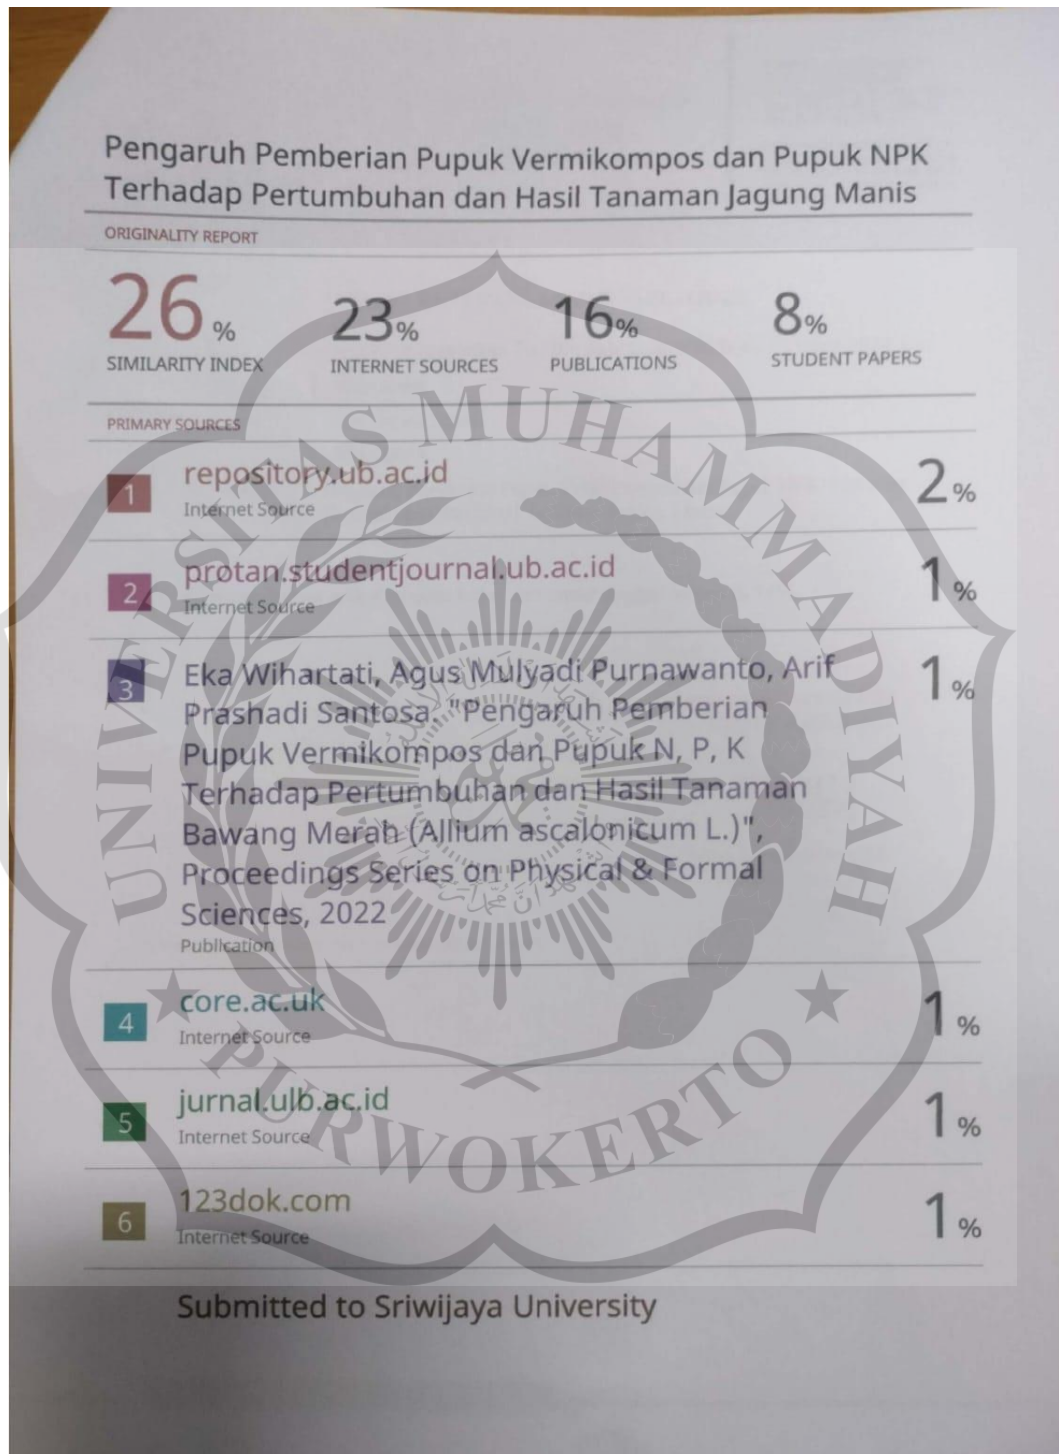 Pengaruh Pemberian Pupuk Vermikompos dan Pupuk NPK
Terhadap Pertumbuhan dan Hasil Tanaman Jagung Manis
ORIGINALITY REPORT
26%
SIMILARITY INDEX
23%
INTERNET SOURCES
16%
PUBLICATIONS
8%
STUDENT PAPERS
PRIMARY SOURCES
1
repository.ub.ac.id
Internet Source
2%
2
protan.studentjournal.ub.ac.id
Internet Source
1%
3
Eka Wihartati, Agus Mulyadi Purnawanto, Arif
Prashadi Santosa. "Pengaruh Pemberian
Pupuk Vermikompos dan Pupuk N, P, K
Terhadap Pertumbuhan dan Hasil Tanaman
Bawang Merah (Allium ascalonicum L.)",
Proceedings Series on Physical & Formal
Sciences, 2022
Publication
1%
4
core.ac.uk
Internet Source
1%
5
jurnal.ulb.ac.id
Internet Source
1%
6
123dok.com
Internet Source
1%
Submitted to Sriwijaya University
UNIVERSITAS MUHAMMADIYAH
PURWOKERTO